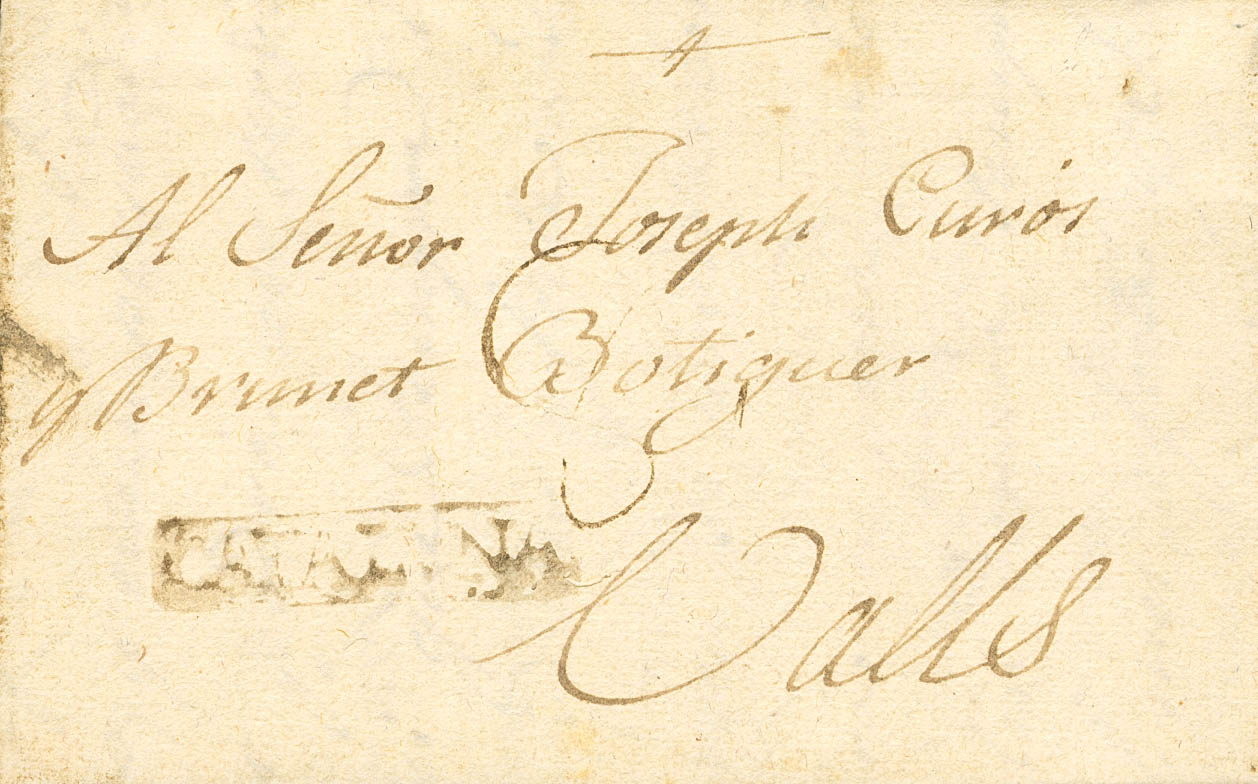 Al Señor Joseph Curós
y Brunet Botiguer
CATALUÑA
Valls